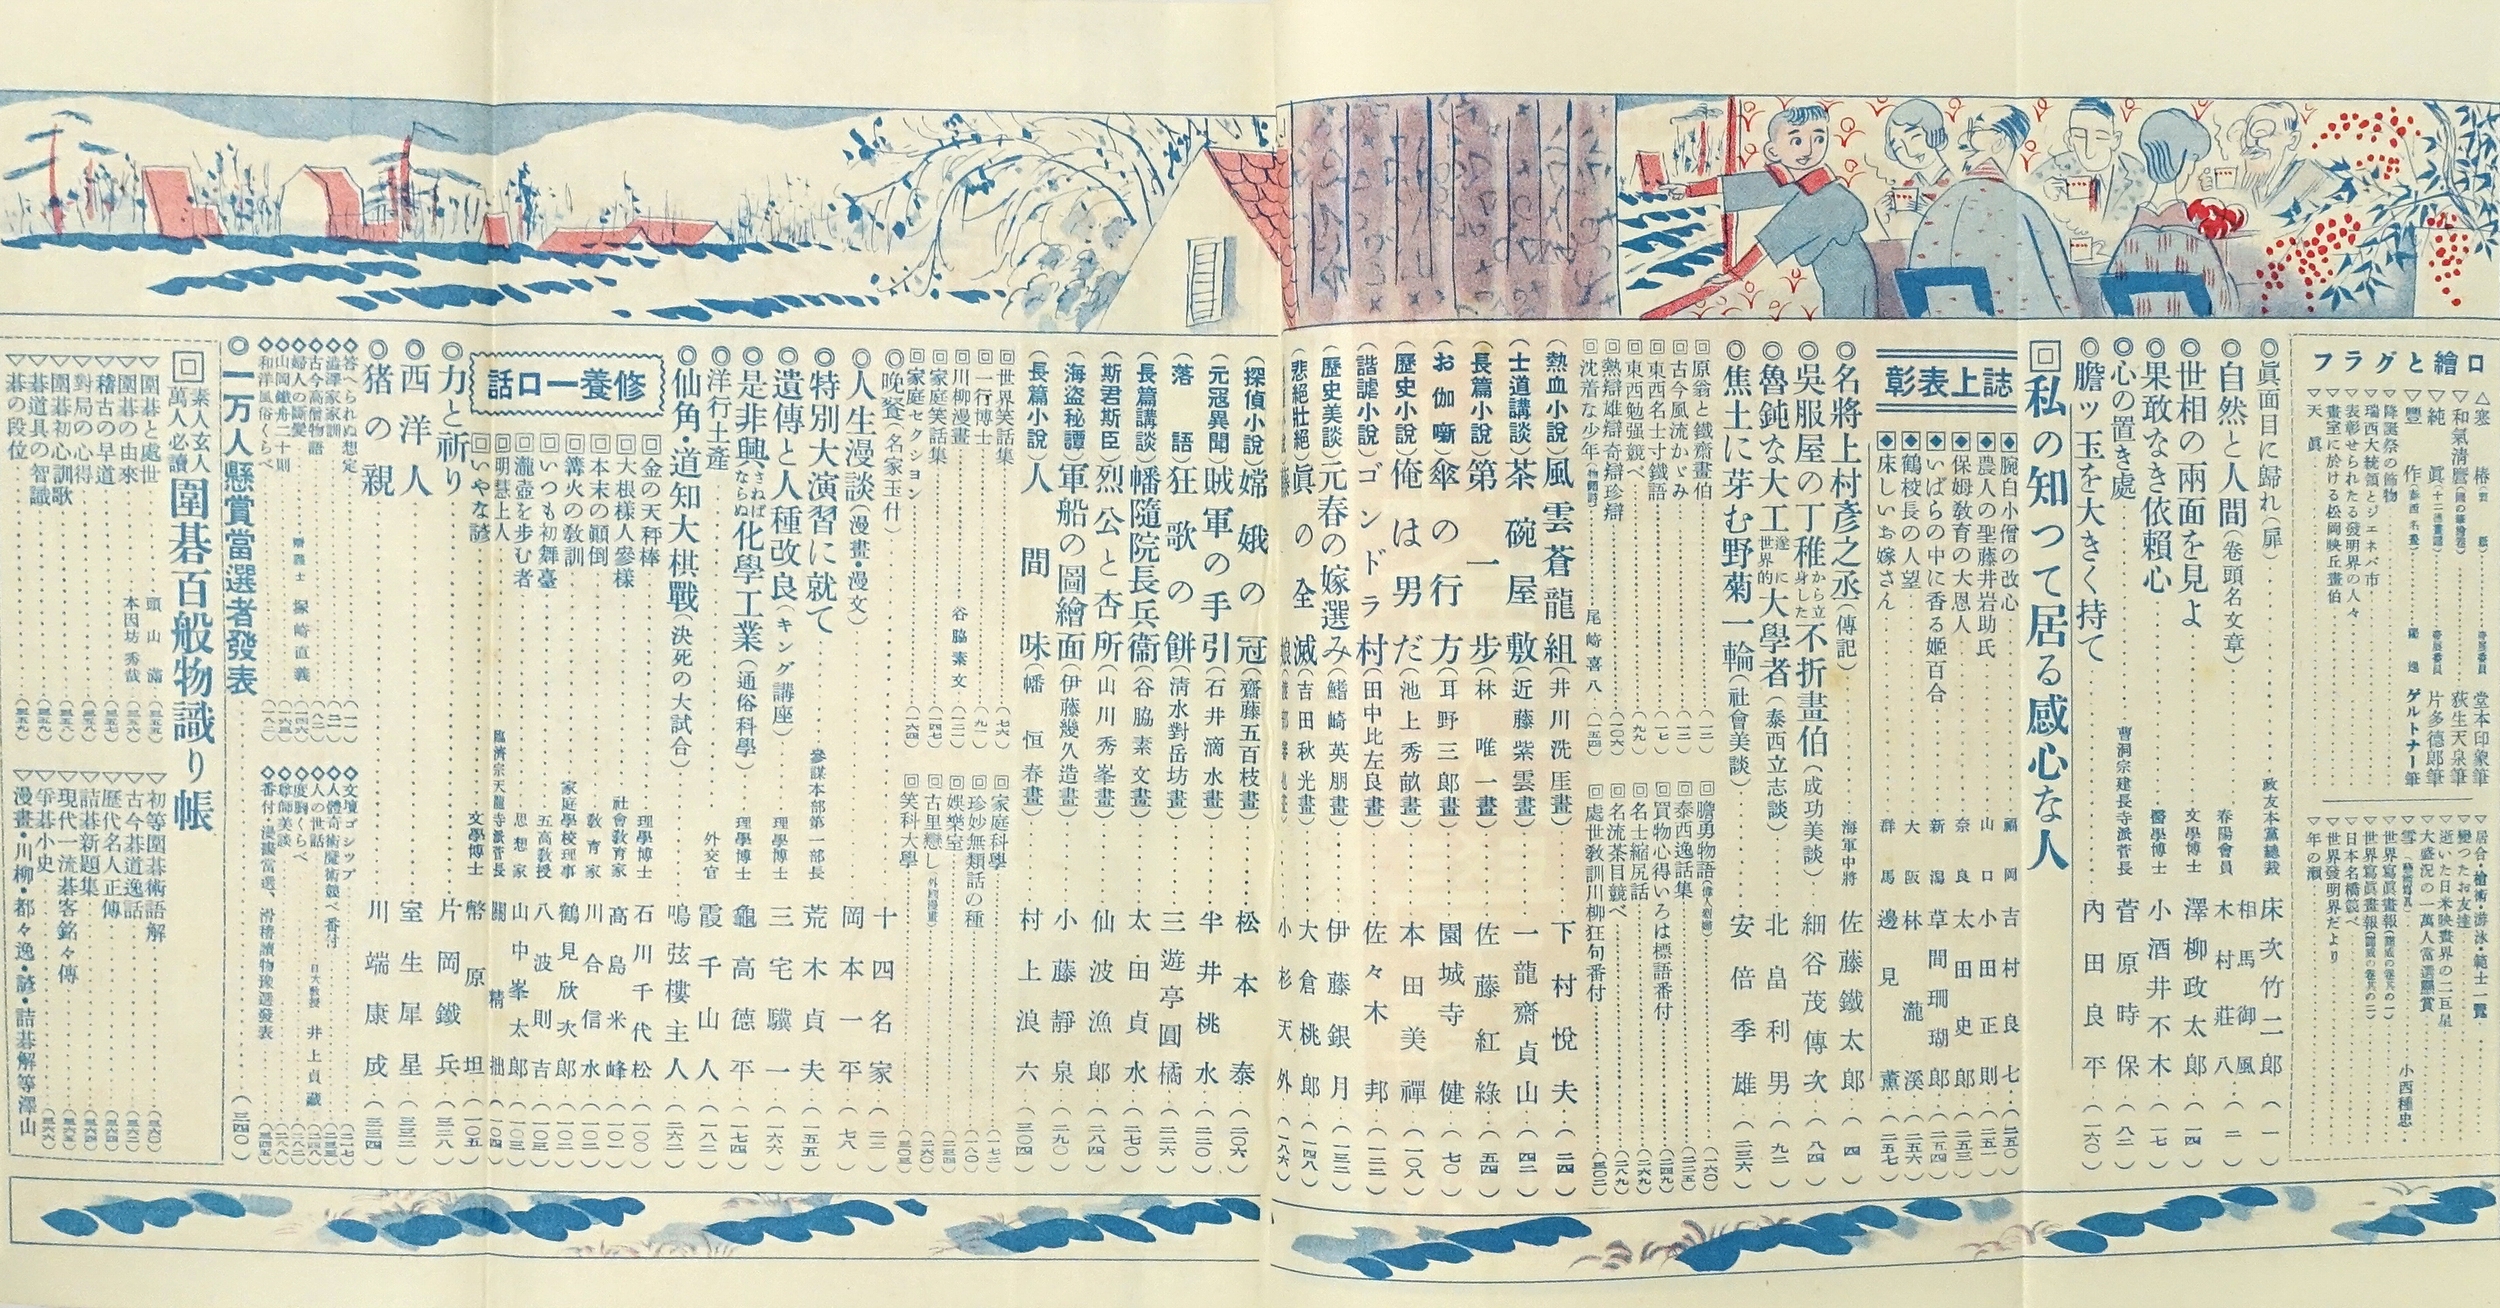 口繪とグラフ
△寒椿 堂本印象筆
▽和氣清麿 荻生天泉筆
▽純眞 片多德郎筆
▽豐作 ゲルトナー筆
▽降誕祭の飾物
▽瑞西大統領とジェネバ市
▽表彰せられたる發明界の人々
▽畫室に於ける松岡映丘畫伯
▽天眞
▽居合・槍術・游泳・範士一覽
▽變つたお友達
▽逝いた日米映畫界の二巨星
▽大盛況の一萬人當選懸賞
▽雪 小西種忠
▽世界寫眞畫報
▽世界寫眞畫報
▽日本名橋競べ
▽世界發明界だより
▽年の瀬
◎眞面目に歸れ(扉) 政友本黨總裁 床次竹二郎 (一)
◎自然と人間(卷頭名文章) 相馬御風 春陽會員 木村莊八 (二)
◎世相の兩面を見よ 文學博士 澤柳政太郎 (一四)
◎果敢なき依賴心 醫學博士 小酒井不木 (一七)
◎心の置き處 曹洞宗建長寺派管長 菅原時保 (八二)
◎膽ッ玉を大きく持て 內田良平 (一六〇)
回私の知つて居る感心な人
誌上表彰
◆腕白小僧の改心 福岡 吉村良七 (二五〇)
◆農人の聖藤井岩助氏 山口 小田正則 (二五一)
◆保姆敎育の大恩人 奈良 太田史郎 (二五三)
◆いばらの中に香る姬百合 新潟 草間珊瑚郎 (二五四)
◆鶴校長の人望 大阪 林瀧溪 (二五六)
◆床しいお嫁さん 群馬 邊見薰 (二五七)
◎名將上村彥之丞(傳記) 海軍中將 佐藤鐵太郎 (四)
◎吳服屋の丁稚から立身した不折畫伯(成功美談) 細谷茂傳次 (八四)
◎魯鈍な大工遂に世界的大學者(泰西立志談) 北畠利男 (九二)
◎焦土に芽む野菊一輪(社會美談) 安倍季雄 (三三六)
回原翁と鐵齋畫伯 (一二)
回古今風流かゞみ (一三)
回東西名士寸鐵語 (一七)
回東西勉强競べ (九九)
回熱辯雄辯奇辯珍辯 (一〇六)
回沈着な少年 尾崎喜八 (一五四)
回膽勇物語 (一六〇)
回泰西逸話集 (二二五)
回買物心得いろは標語番付 (二四九)
回名士縮尻話 (二六九)
回名流茶目競べ (二八九)
回處世敎訓川柳狂句番付 (三〇二)
(熱血小說)風雲蒼龍組(井川洗厓畫) 下村悅夫 (二四)
(士道講談)茶碗屋敷(近藤紫雲畫) 一龍齋貞山 (四二)
(長篇小說)第一步(林唯一畫) 佐藤紅綠 (五四)
(お伽噺)傘の行方(耳野三郞畫) 園城寺健 (七〇)
(歷史小說)俺は男だ(池上秀畝畫) 本田美禪 (一〇八)
(諧謔小說)ゴンドラ村(田中比左良畫) 佐々木邦 (一二二)
(歷史美談)元春の嫁選み(鰭崎英朋畫) 伊藤銀月 (一三二)
(悲絕壯絕)眞の全滅(吉田秋光畫) 大倉桃郎 (一四八)
小杉天外 (一八六)
(探偵小說)嫦娥の冠(齋藤五百枝畫) 松本泰 (二〇六)
(元寇異聞)賊軍の手引(石井滴水畫) 半井桃水 (二二〇)
(落語)狂歌の餅(淸水對岳坊畫) 三遊亭圓橘 (二二六)
(長篇講談)幡隨院長兵衞(谷脇素文畫) 太田貞水 (二七〇)
(斯君斯臣)烈公と杏所(山川秀峯畫) 仙波漁郎 (二八四)
(海盜秘譚)軍船の圖繪面(伊藤幾久造畫) 小藤靜泉 (二九〇)
(長篇小說)人間味(幡恒春畫) 村上浪六 (三〇四)
回世界笑話集 (七六)
回一行博士 (九一)
回川柳漫畫 谷脇素文 (一二一)
回家庭笑話集 (一四七)
回家庭セクション (一六四)
回家庭科學 (一七二)
回珍妙無類話の種 (一八〇)
回娛樂室 (二三四)
回古里戀し (二六〇)
回笑科大學 (三〇三)
◎晩餐(名家玉什) 十四名家 (二二)
◎人生漫談(漫畫・漫文) 岡本一平 (七八)
◎特別大演習に就て 參謀本部第一部長 荒木貞夫 (一五五)
◎遺傳と人種改良(キング講座) 理學博士 三宅驥一 (一六六)
◎是非興さねばならぬ化學工業(通俗科學) 理學博士 龜高德平 (一七四)
◎洋行土產 外交官 霞千山人 (一八二)
◎仙角・道知大棋戰(決死の大試合) 鳴弦樓主人 (二六二)
修養一口話
回金の天秤棒 理學博士 石川千代松 (一〇〇)
回大根樣人參樣 社會敎育家 高島米峰 (一〇一)
回本末の顚倒 敎育家 川合信水 (一〇二)
回篝火の敎訓 家庭學校理事 鶴見欣次郎 (一〇二)
回いつも初舞臺 五高敎授 八波則吉 (一〇三)
回瀧壺を步む者 思想家 山中峯太郎 (一〇三)
回明慧上人 臨濟宗天龍寺派管長 關精拙 (一〇四)
回いやな諺 文學博士 幣原坦 (一〇五)
◎力と祈り 片岡鐵兵 (三二八)
◎西洋人 室生犀星 (三三二)
◎猪の親 川端康成 (三三四)
◇答へられぬ想定 (一一)
◇澁澤家家訓 (二一)
◇古今高僧物語 (八一)
◇婦人の斷髮 辯護士 塚崎直義 (一四六)
◇山岡鐵舟二十則 (一六三)
◇和洋風俗くらべ (一八二)
◇文壇ゴシップ (二一七)
◇人體奇術魔術競べ番付 (二三五)
◇人の世話 日大敎授 井上貞藏 (二四八)
◇度胸くらべ (二八二)
◇尊師美談 (二八八)
◇番付・漫畫當選、滑稽讀物豫選發表 (三四五)
◎一万人懸賞當選者發表 (三四〇)
回素人玄人萬人必讀 圍碁百般物識り帳
▽圍碁と處世 頭山滿 (三五五)
▽圍碁の由來 本因坊秀哉 (三五六)
▽稽古の早道 (三五七)
▽對局の心得 (三五八)
▽圍碁初心訓歌 (三五八)
▽碁道具の智識 (三五九)
▽碁の段位 (三五九)
▽初等圍碁術語解 (三六〇)
▽古今碁道逸話 (三六二)
▽歷代名人正傳 (三六四)
▽詰碁新題集 (三六四)
▽現代一流碁客銘々傳 (三六五)
▽爭碁小史 (三六六)
▽漫畫・川柳・都々逸・諺・詰碁解等澤山